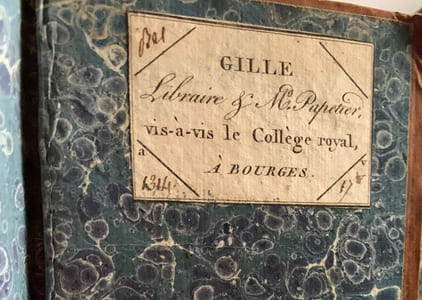 Bel
GILLE
Libraire & Md. Papetier,
vis-à-vis le Collège royal,
a
À BOURGES.